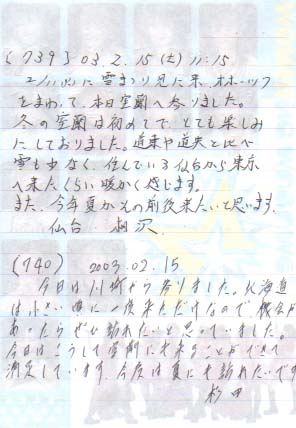 (739) 03.2.15(土) 11:15
2/11(火)に雪まつり見に来、オホーツク
をまわって、本日室蘭へ参りました。
冬の室蘭は初めてで、とても楽しみ
にしておりました。道東や道央と比べ
雪も少なく、住んでいる仙台から東京
へ来たくらい暖かく感じます。
また、今年夏かその前後来たいと思います。
仙台
(740) 2003.02.15
今日は川崎から参りました。北海道
は小さい頃に一度来ただけなので機会が
あったらぜひ訪れたいと思っていました。
今日はこうして室蘭に来ることができて
満足しています。今度は夏にも訪れたいです
杉田